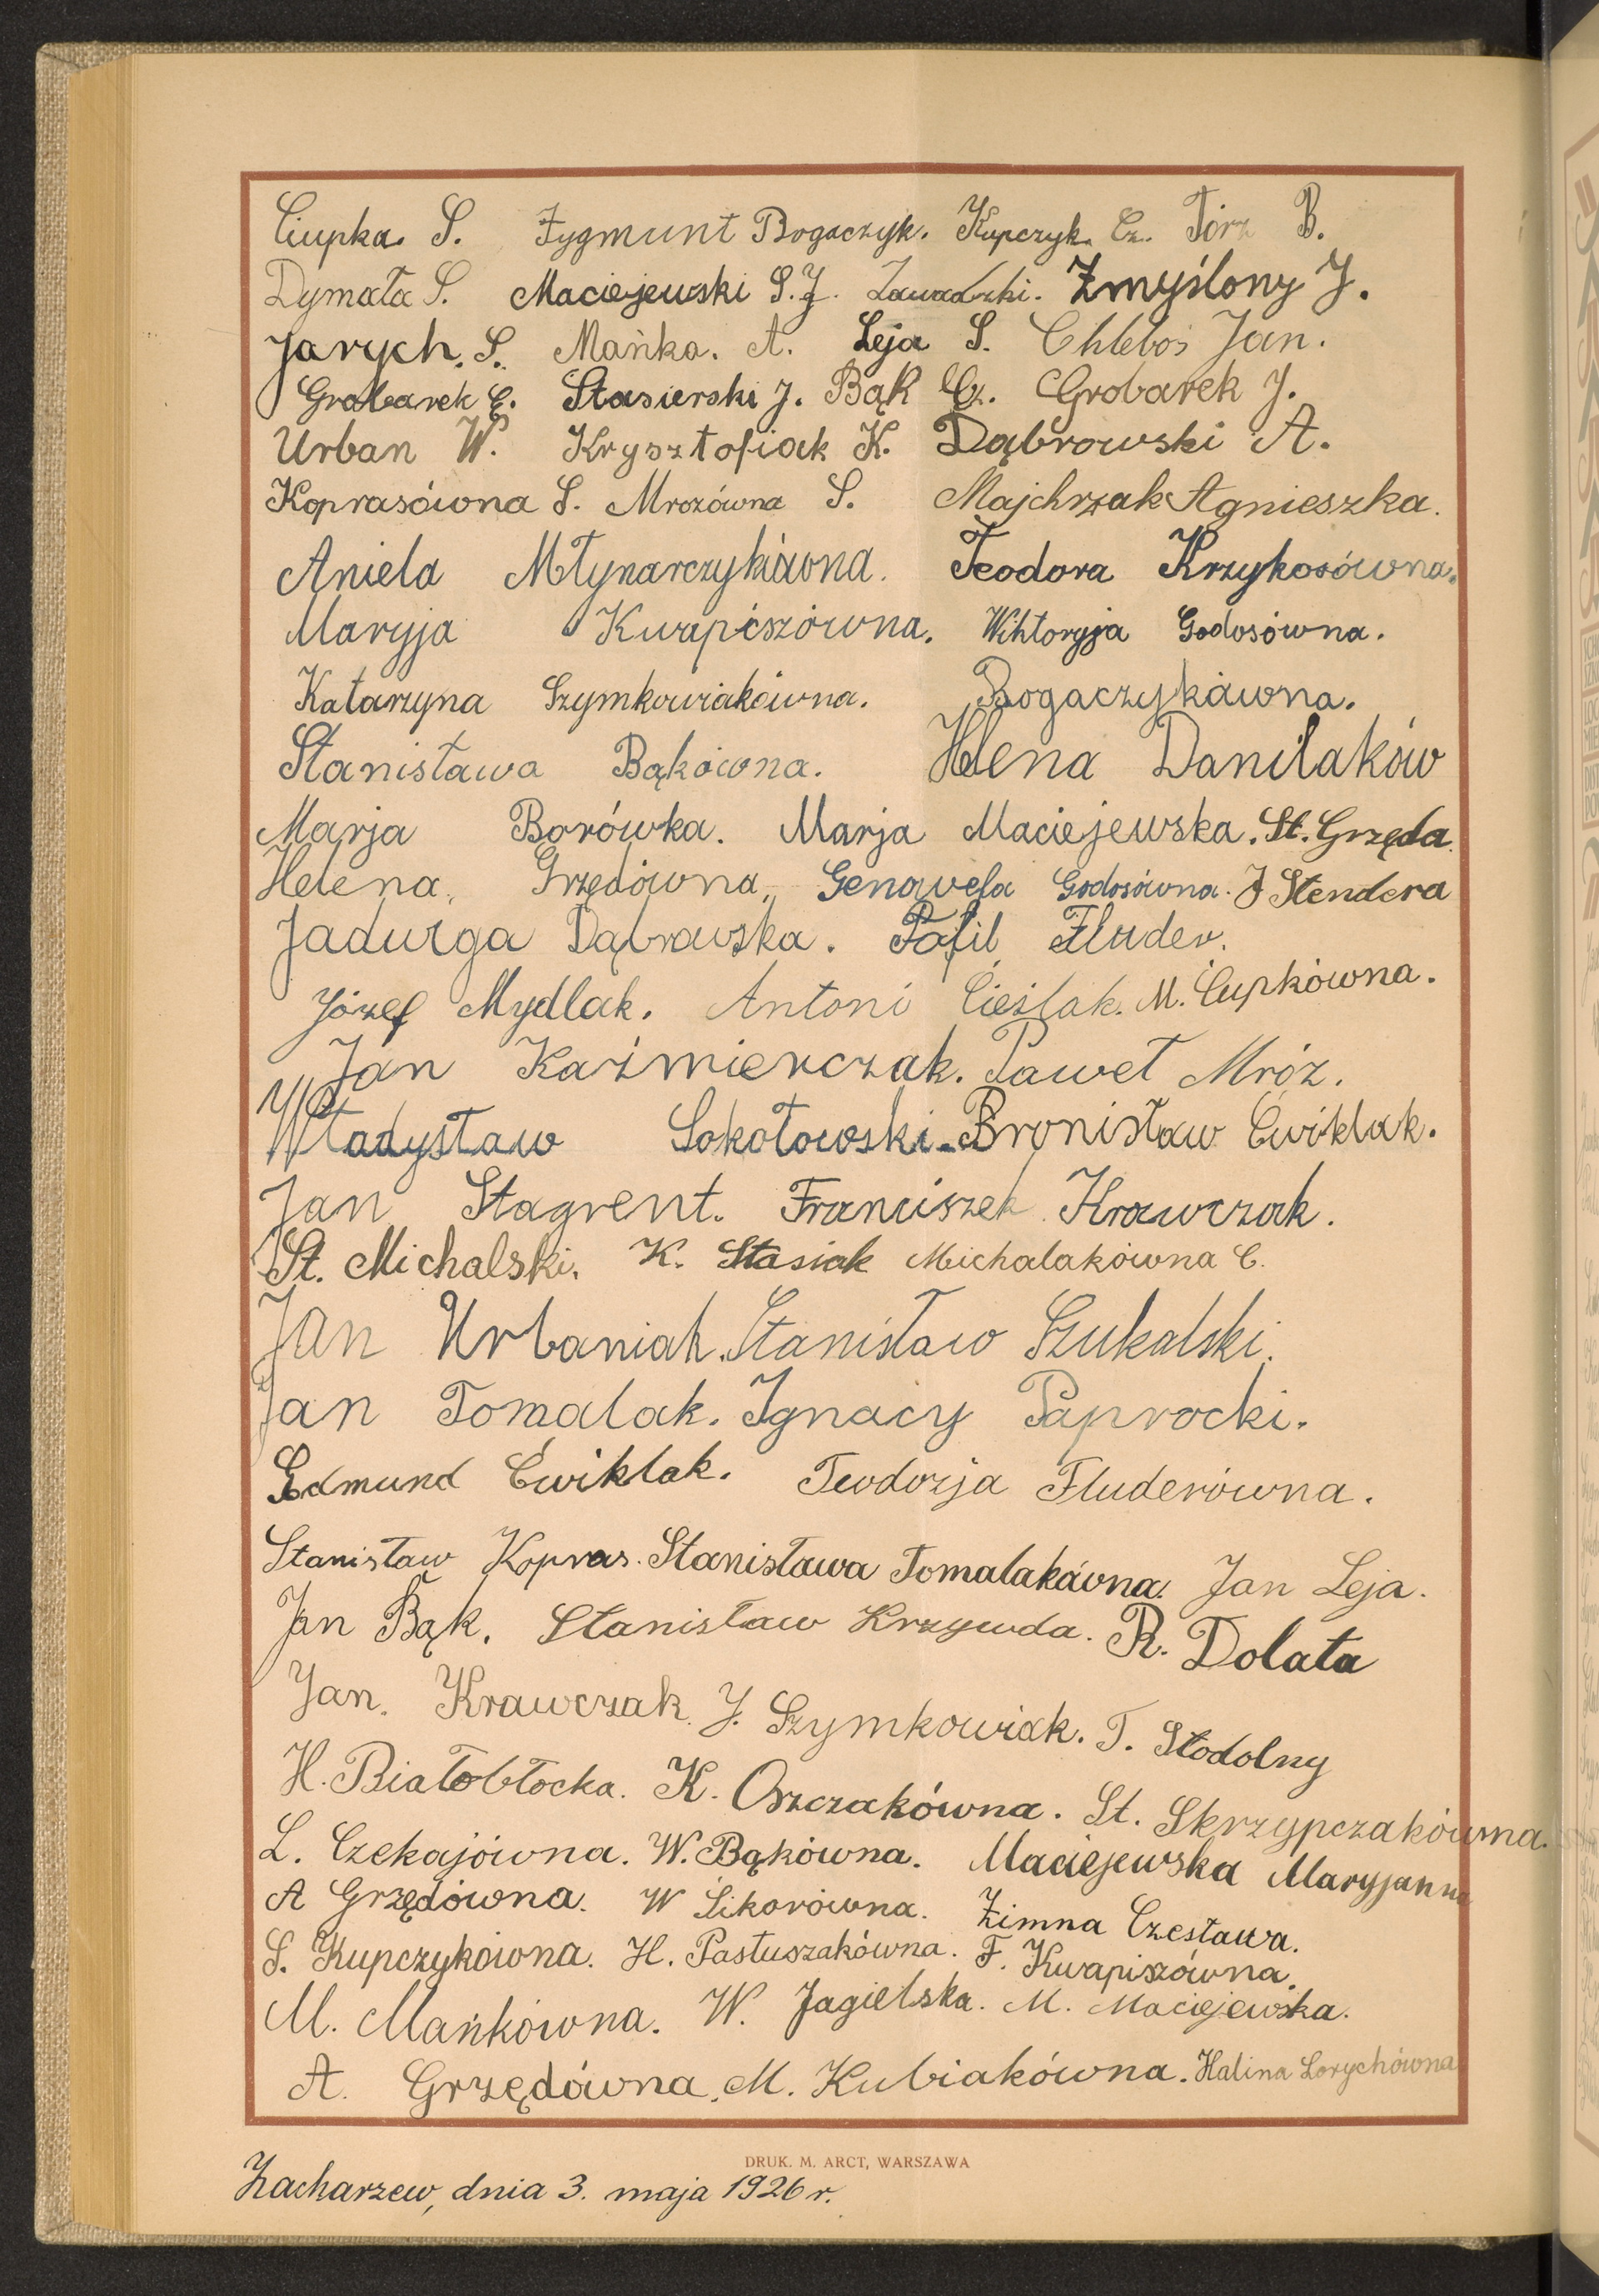 Ciupka. S. Zygmunt Bogaczyk. Kupczyk. Cz. Tórz B.
Dymała S. Maciejewski S. J. Zawadzki. Zmyślony J.
Jarych. S. Mańka. A. Leja S. Chleboś Jan.
Grobarek C. Stasierski J. Bąk Cz. Grobarek J.
Urban W. Krysztofiak K. Dąbrowski A.
Koprasówna S. Mrozówna S. Majchrzak Agnieszka.
Aniela Młynarczykówna. Teodora Krzykosówna.
Maryja Kwapiszówna. Wiktoryja Godosówna.
Katarzyna Szymkowiakówna. Bogaczykówna.
Stanisława Bąkówna. Helena Danilaków
Marja Borówka. Marja Maciejewska. St. Grzęda.
Helena. Grzędówna, Genowefa Godosówna. J Stendera
Jadwiga Dąbrowska. Fluder.
Józef Mydlak. Antoni Cieślak. M. Cupkówna.
Jan Kaźmierczak. Paweł Mróz.
Władysław Sokołowski. Bronisław Ćwiklak.
Jan Stagrent. Franciszek Krawczak.
St. Michalski. K. Stasiak Michalakówna C.
Jan Urbaniak. Stanisław Szukalski.
Jan Tomalak. Ignacy Paprocki.
Edmund Ćwiklak. Teodozja Fluderówna.
Stanisław Kopras. Stanisława Tomalakówna. Jan Leja.
Jan Bąk. Stanisław Krzywda. R. Dolata
Jan. Krawczak. J. Szymkowiak. T. Stodolny
H. Białobłocka. K. Oszczakówna. St. Skrzypczakówna.
L. Czekajówna. W. Bąkówna. Maciejewska Maryjanna
A Grzędówna. W Sikorówna. Zimna Czesława.
S. Kupczykówna. H. Pastuszakówna. F. Kwapiszówna.
M. Mańkówna. W. Jagielska. M. Maciejewska.
A. Grzędówna. M. Kubiakówna. Halina Lorychówna
DRUK. M. ARCT, WARSZAWA
Zacharzew, dnia 3. maja 1926 r.